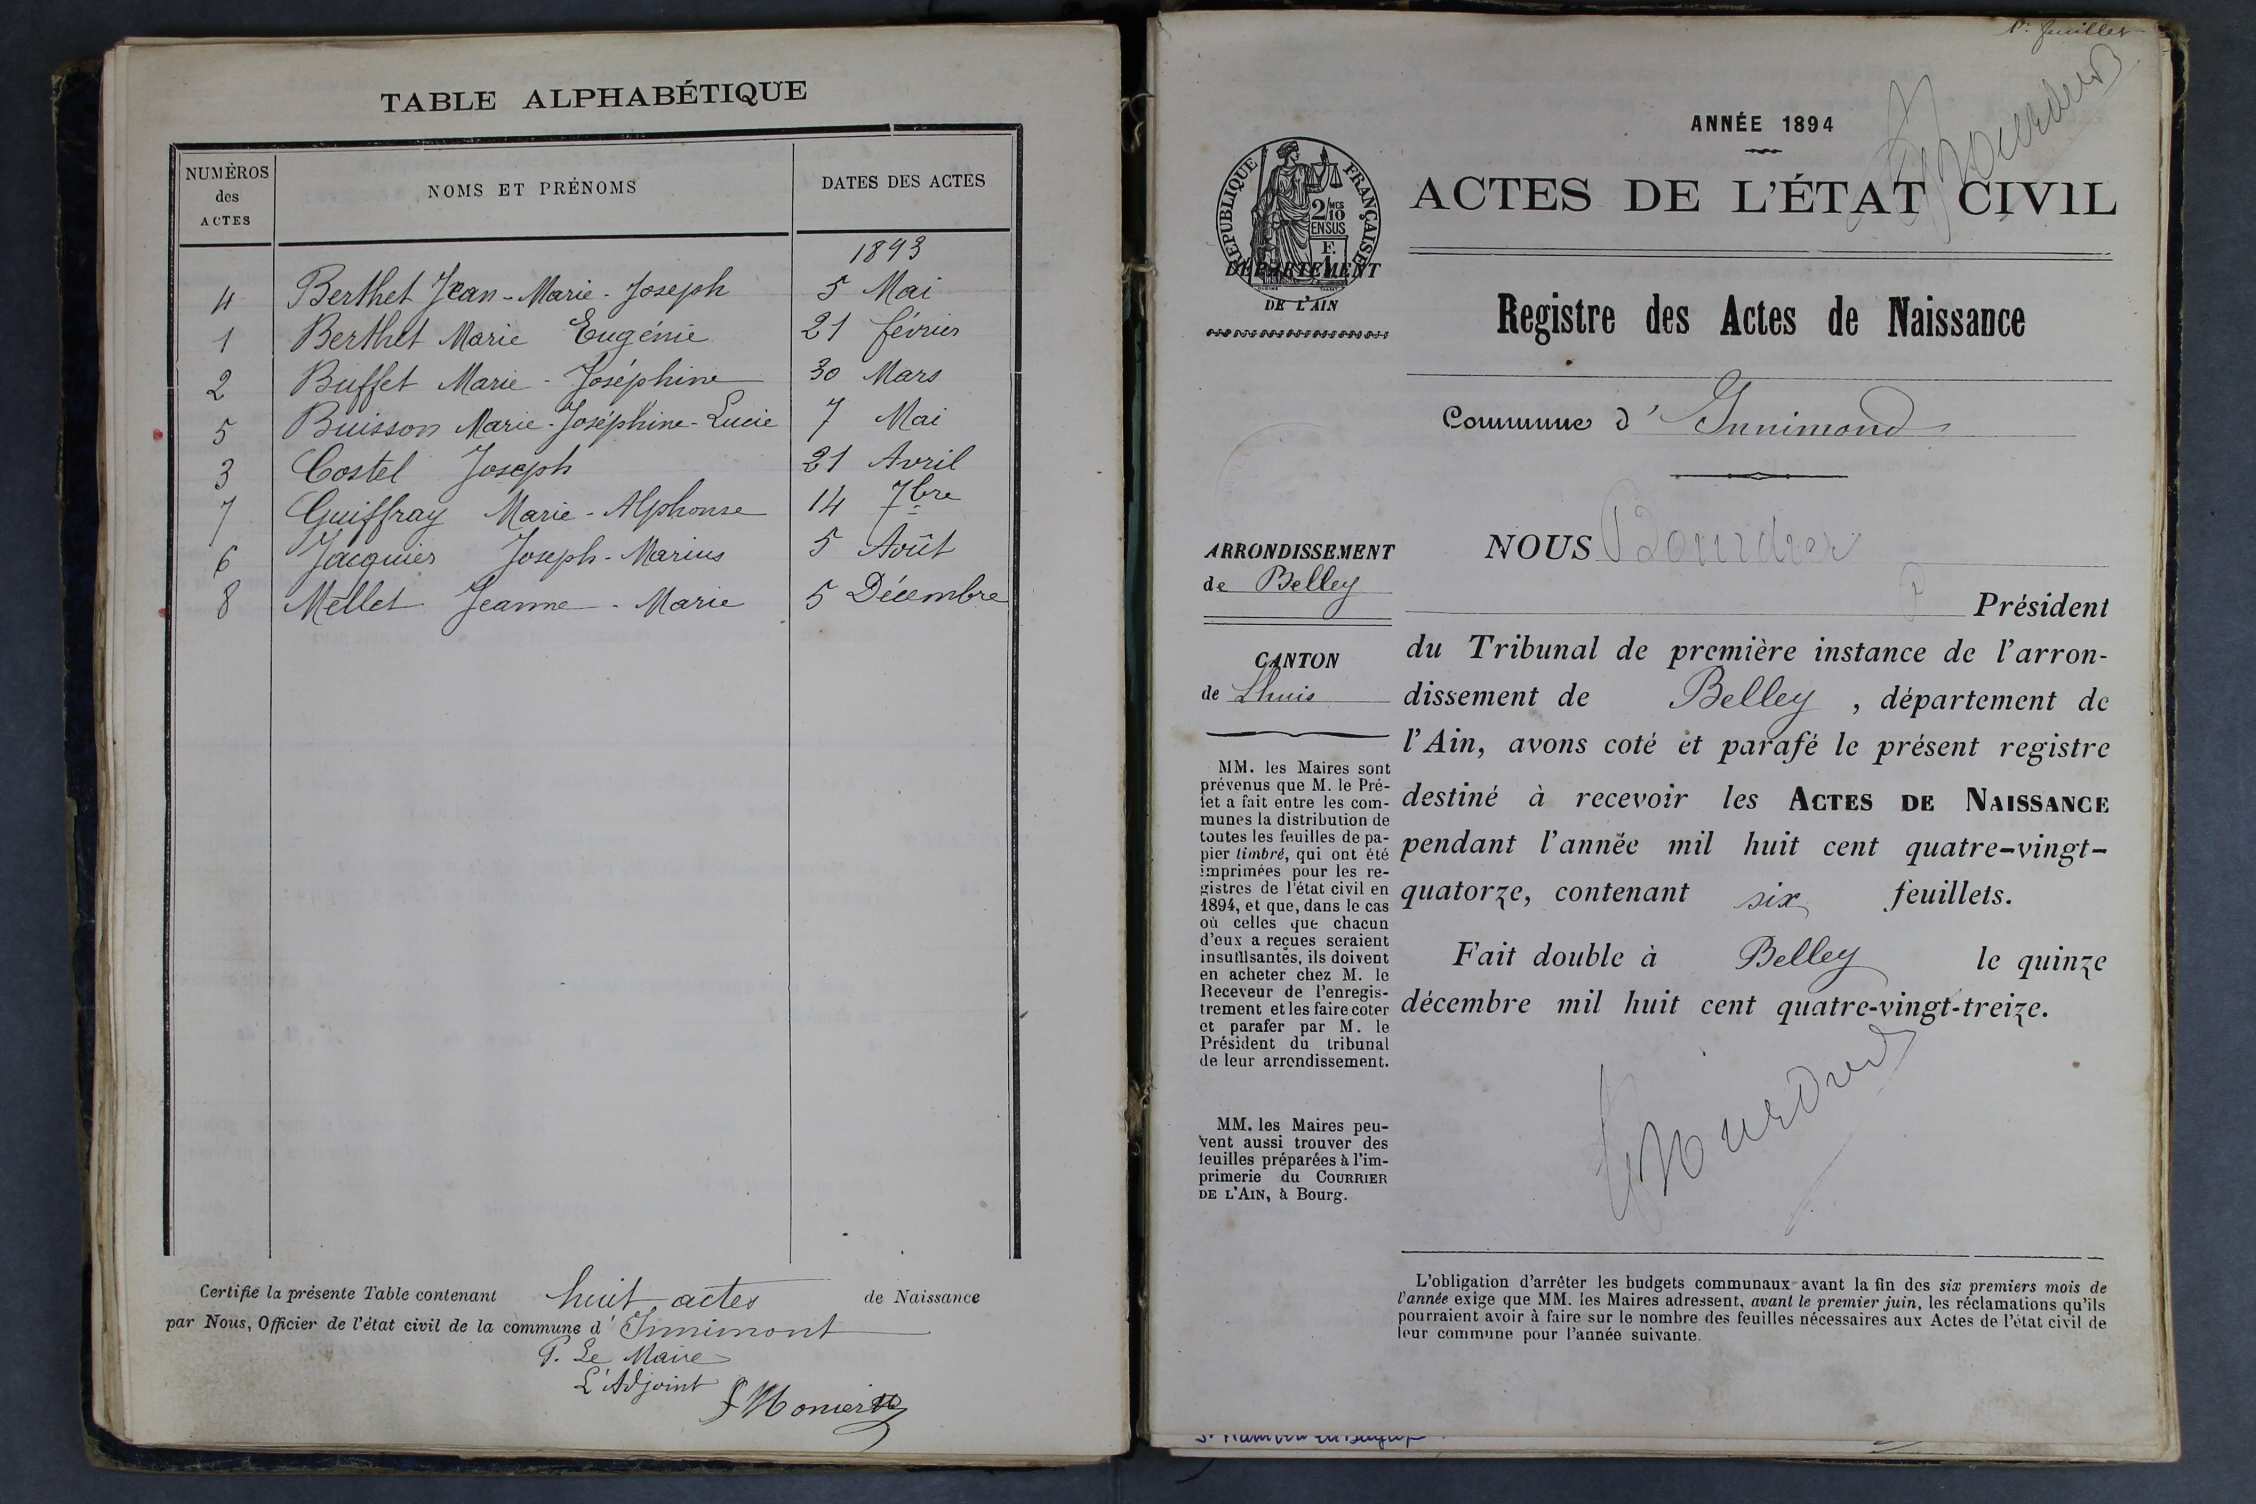 TABLE ALPHABÉTIQUE
NUMÉROS des ACTES
NOMS ET PRÉNOMS
DATES DES ACTES
1893
4 Berthet Jean-Marie-Joseph 5 Mai
1 Berthet Marie Eugénie 21 février
2 Buffet Marie-Joséphine 30 Mars
5 Buisson Marie-Joséphine-Lucie 7 Mai
3 Costel Joseph 21 Avril
7 Guiffray Marie-Alphonse 14 7bre
6 Jacquier Joseph-Marius 5 Août
8 Mellet Jeanne-Marie 5 Décembre
Certifié la présente Table contenant huit actes de Naissance
par Nous, Officier de l'état civil de la commune d'Innimont
P. Le Maire
L'Adjoint
1er feuillet
ANNÉE 1894
ACTES DE L'ÉTAT CIVIL
RÉPUBLIQUE FRANÇAISE
2/10 MES
EN SUS
F.
1
DÉPARTEMENT
DE L'AIN
Registre des Actes de Naissance
Commune d'Innimond
ARRONDISSEMENT
de Belley
CANTON
de Lhuis
MM. les Maires sont
prévenus que M. le Pré-
fet a fait entre les com-
munes la distribution de
toutes les feuilles de pa-
pier timbré, qui ont été
imprimées pour les re-
gistres de l'état civil en
1894, et que, dans le cas
où celles que chacun
d'eux a reçues seraient
insuffisantes, ils doivent
en acheter chez M. le
Receveur de l'enregis-
trement et les faire coter
et parafer par M. le
Président du tribunal
de leur arrondissement.
MM. les Maires peu-
vent aussi trouver des
feuilles préparées à l'im-
primerie du COURRIER
DE L'AIN, à Bourg.
NOUS Bourdier
P Président
du Tribunal de première instance de l'arron-
dissement de Belley, département de
l'Ain, avons coté et parafé le présent registre
destiné à recevoir les ACTES DE NAISSANCE
pendant l'année mil huit cent quatre-vingt-
quatorze, contenant six feuillets.
Fait double à Belley le quinze
décembre mil huit cent quatre-vingt-treize.
L'obligation d'arrêter les budgets communaux avant la fin des six premiers mois de
l'année exige que MM. les Maires adressent, avant le premier juin, les réclamations qu'ils
pourraient avoir à faire sur le nombre des feuilles nécessaires aux Actes de l'état civil de
leur commune pour l'année suivante.